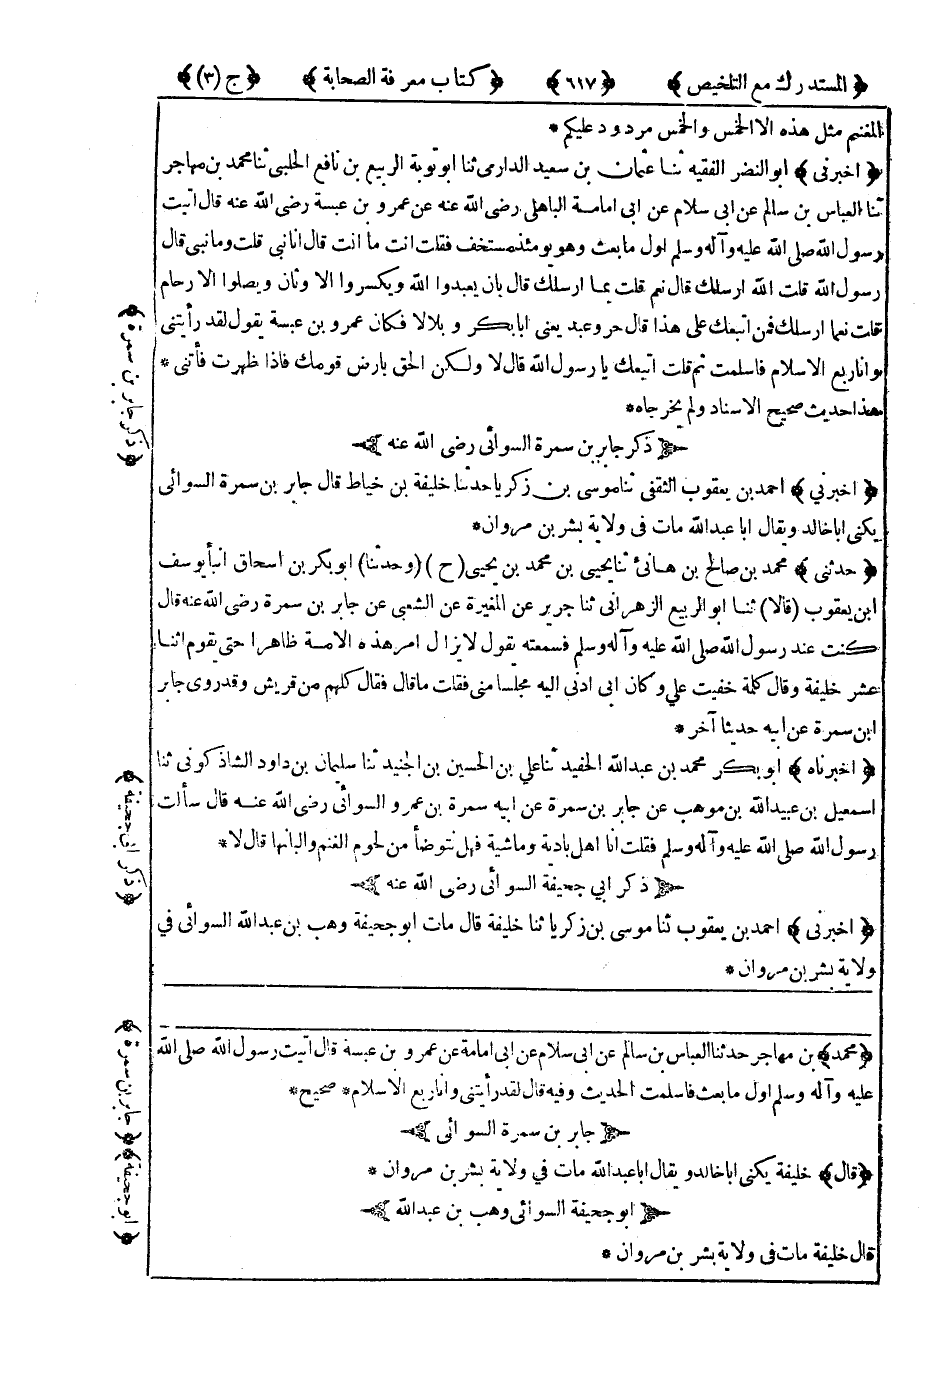 ﴿ المستدرك مع التلخيص ﴾ ﴿ ٦١٧ ﴾ ﴿ كتاب معرفة الصحابة ﴾ ﴿ ج (٣) ﴾
المغنم مثل هذه الا الخمس والخمس مردود عليكم *
﴿ اخبرنى ﴾ ابو النضر الفقيه ثنا عثمان بن سعيد الدارمى ثنا ابو توبة الربيع بن نافع الحلبي ثنا محمد بن مهاجر
ثنا العباس بن سالم عن ابى سلام عن ابى امامة الباهلى رضى الله عنه عن عمرو بن عبسة رضى الله عنه قال اتيت
رسول الله صلى الله عليه وآله وسلم اول ما بعث وهو يومئذ مستخف فقلت انت ما انت قال انا نبى قلت وما نبى قال
رسول الله قلت الله ارسلك قال نعم قلت بما ارسلك قال بان يعبدوا الله ويكسروا الاوثان ويصلوا الارحام
قلت نعما ارسلك فمن اتبعك على هذا قال حر وعبد يعنى ابا بكر و بلالا فكان عمرو بن عبسة يقول لقد رأيتنى
وانا ربع الاسلام فاسلمت ثم قلت اتبعك يا رسول الله قال لا ولكن الحق بارض قومك فاذا ظهرت فأتنى *
هذا حديث صحيح الاسناد ولم يخرجاه *
ذكر جابر بن سمرة السوائى رضى الله عنه
﴿ اخبرني ﴾ احمد بن يعقوب الثقفى ثنا موسى بن زكريا حدثنا خليفة بن خياط قال جابر بن سمرة السوائى
يكنى ابا خالد ويقال ابا عبدالله مات فى ولاية بشر بن مروان *
﴿ حدثنى ﴾ محمد بن صالح بن هانئ ثنا يحيى بن محمد بن يحيى (ح) (وحدثنا) ابو بكر بن اسحاق انبأ يوسف
ابن يعقوب (قالا) ثنا ابو الربيع الزهرانى ثنا جرير عن المغيرة عن الشعبى عن جابر بن سمرة رضى الله عنه قال
كنت عند رسول الله صلى الله عليه وآله وسلم فسمعته يقول لا يزال امر هذه الامة ظاهرا حتى يقوم اثنا
عشر خليفة وقال كلمة خفيت علي وكان ابى ادنى اليه مجلسا منى فقلت ما قال فقال كلهم من قريش وقد روى جابر
ابن سمرة عن ابيه حديثا آخر *
﴿ اخبرناه ﴾ ابو بكر محمد بن عبدالله الحفيد ثنا علي بن الحسين بن الجنيد ثنا سليمان بن داود الشاذكونى ثنا
اسمعيل بن عبيدالله بن موهب عن جابر بن سمرة عن ابيه سمرة بن عمرو السوائى رضى الله عنه قال سألت
رسول الله صلى الله عليه وآله وسلم فقلت انا اهل بادية وماشية فهل نتوضأ من لحوم الغنم والبانها قال لا *
ذكر ابي جحيفة السوائى رضى الله عنه
﴿ اخبرنى ﴾ احمد بن يعقوب ثنا موسى بن زكريا ثنا خليفة قال مات ابو جحيفة وهب بن عبدالله السوائى في
ولاية بشر بن مروان *
﴿ محمد ﴾ بن مهاجر حدثنا العباس بن سالم عن ابى سلام عن ابى امامة عن عمرو بن عبسة قال اتيت رسول الله صلى الله
عليه وآله وسلم اول ما بعث فاسلمت الحديث وفيه قال لقد رأيتنى وانا ربع الاسلام * صحيح *
جابر بن سمرة السوائى
﴿ قال ﴾ خليفة يكنى ابا خالد ويقال ابا عبدالله مات في ولاية بشر بن مروان *
ابو جحيفة السوائى وهب بن عبدالله
قال خليفة مات فى ولاية بشر بن مروان *
﴿ ذكر جابر بن سمرة ﴾
﴿ ذكر ابى جحيفة ﴾
﴿ جابر بن سمرة ﴾
﴿ ابو جحيفة ﴾